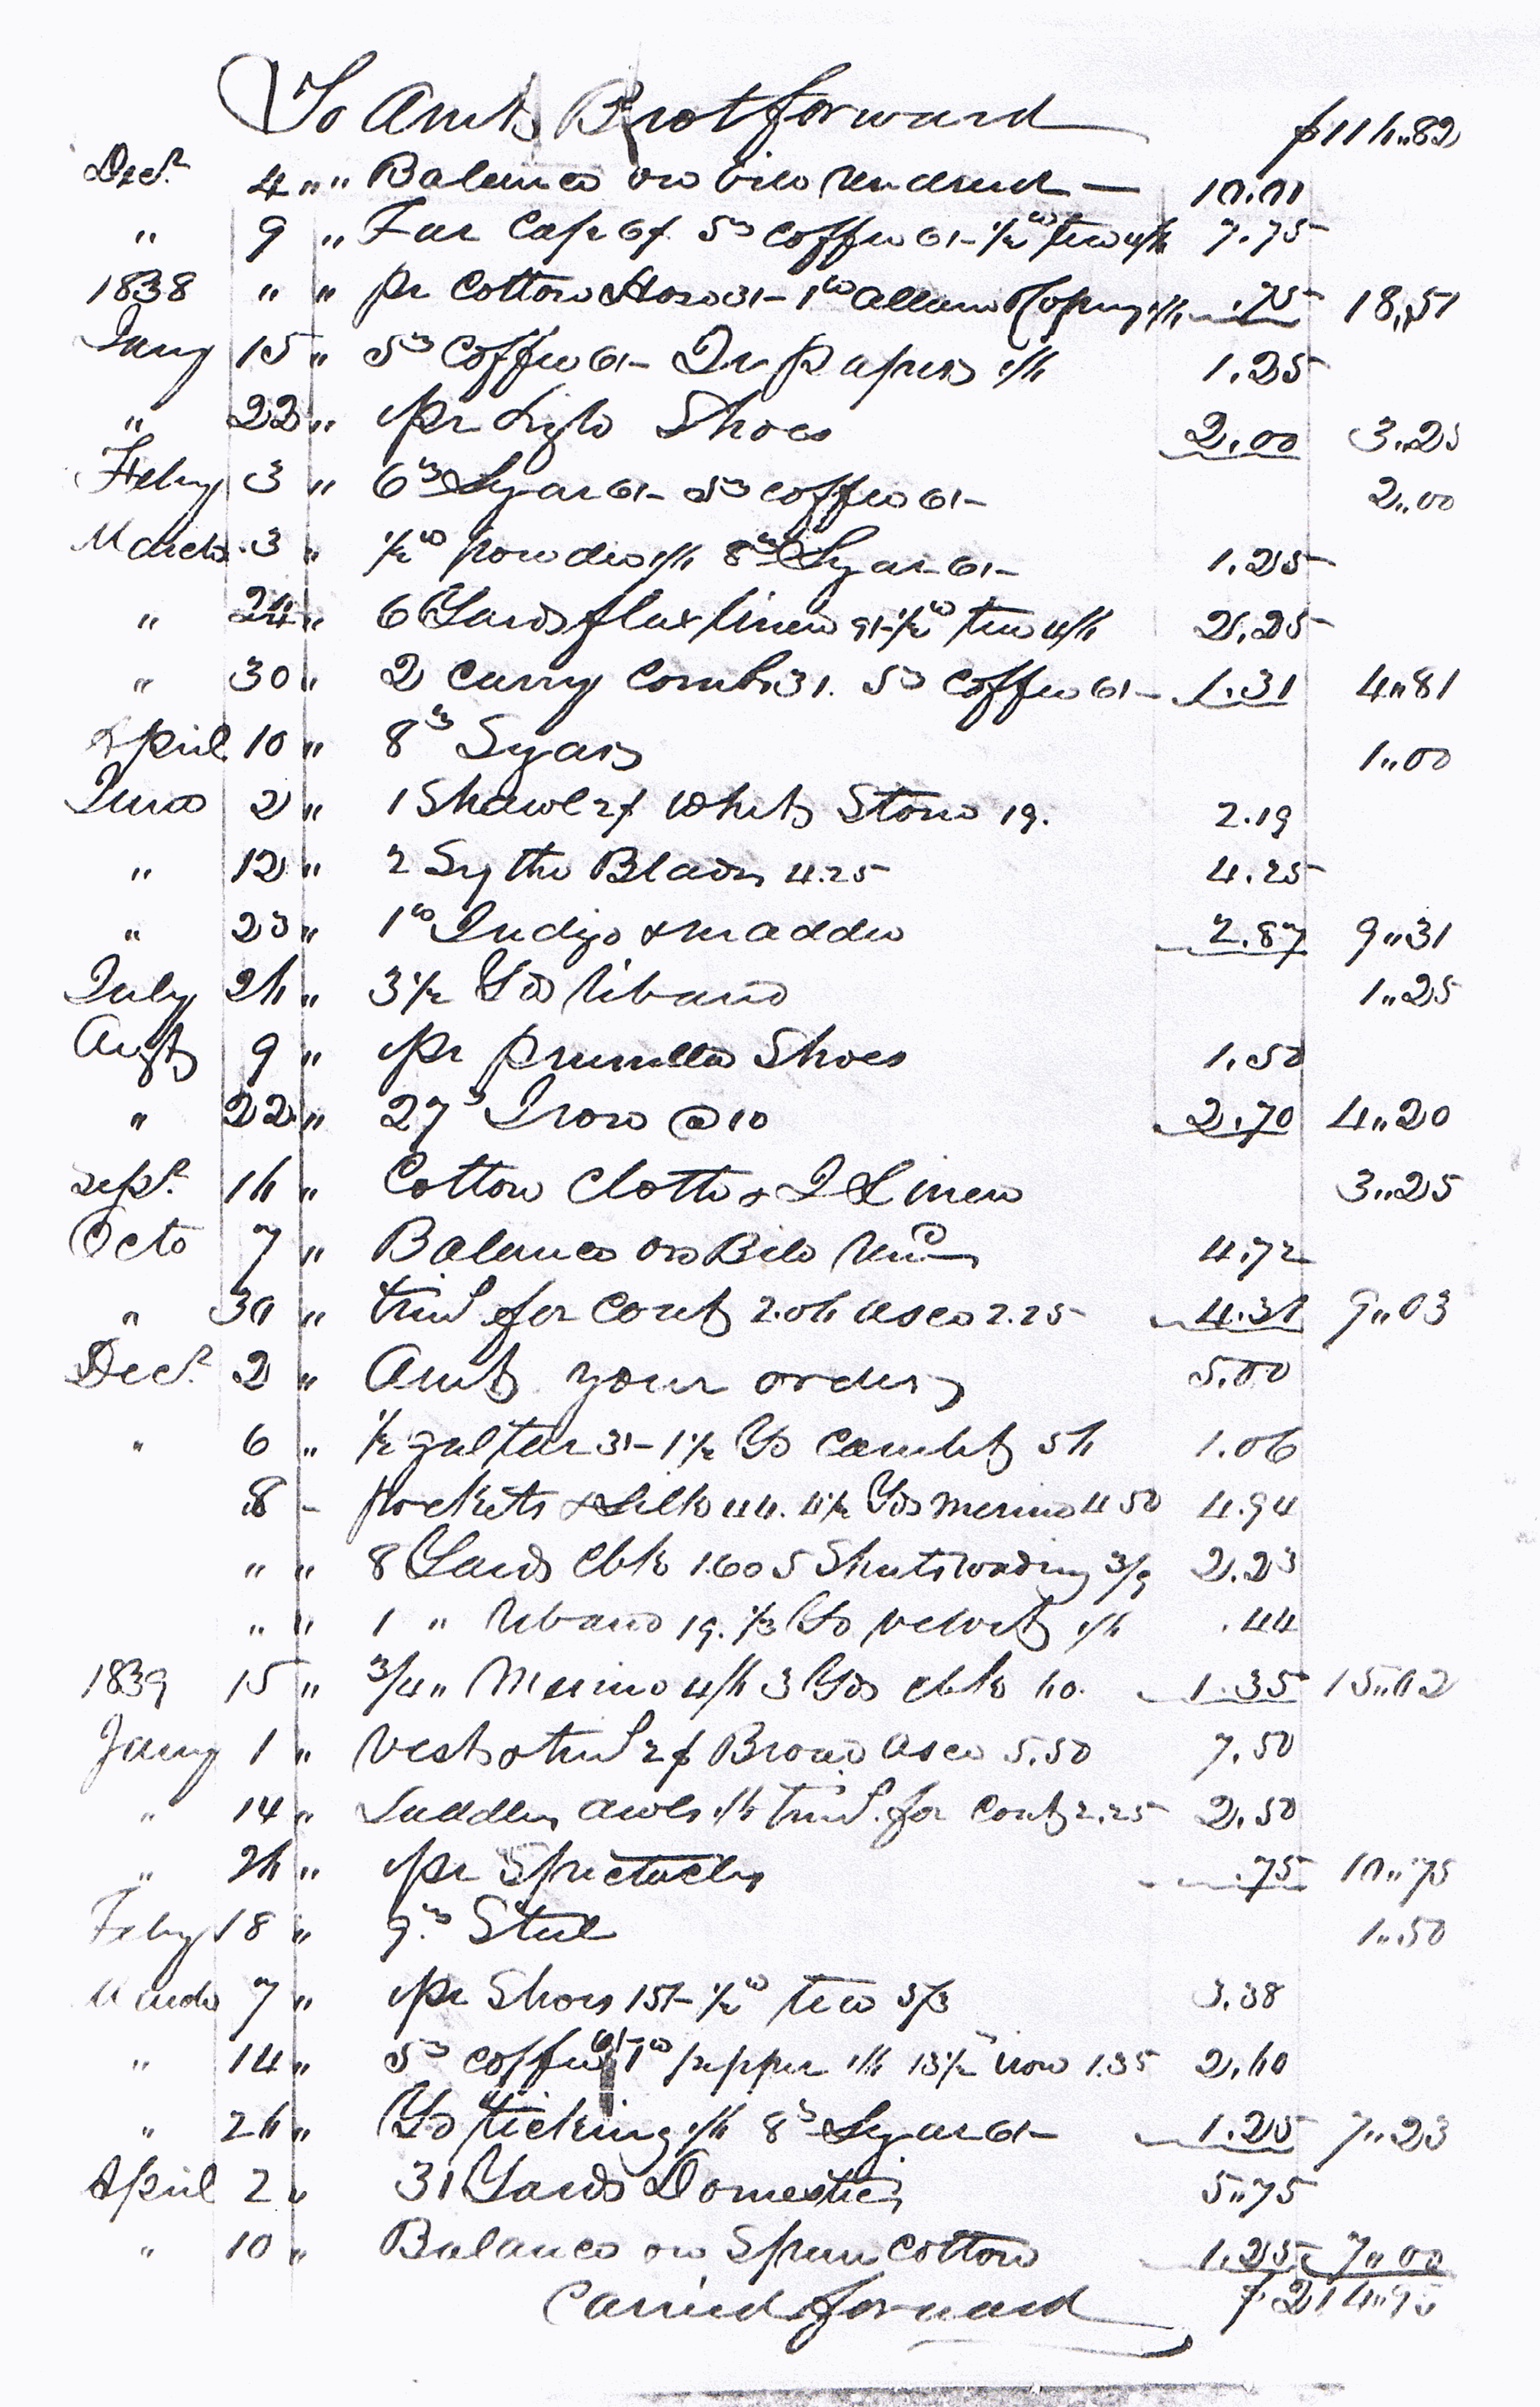 To Amt Brot forward $114..82
Decr. 4 " " Balance on bill rendered — 10.01
" 9 " Fur Cap 6$ 5 lb coffee 6/- 1/2 lb tea 4/6 7.75
1838 " " pr Cotton Hose 3/- 1 lb allum & Copry 1/6 .75 18.51
Jany 15 " 5 lb Coffee 6/- Qr paper 1/6 1.25
" 22 " pr Shoes 2.00 3..25
Feby 3 " 6 lb Sugar 6/- 5 lb coffee 6/- 2..00
March 3 " 1/2 lb powder 1/6 8 lb Sugar 6/- 1.25
" 24 " 6 Yards flax linen 9/- 1/2 lb tea 4/6 2.25
" 30 " 2 Curry Combs 31. 5 lb Coffee 6/- 1.31 4..81
April 10 " 8 lb Sugar 1..00
June 2 " 1 Shawl 2$ Whet Stone 19. 2.19
" 12 " 2 Sythe Blades 4.25 4.25
" 23 " 1 lb Indigo & madder 2.87 9..31
July 24 " 3 1/2 Yds Riband 1..25
Augt 9 " pr prunella Shoes 1.50
" 22 " 27 lb Iron @ 10 2.70 4..20
Sept. 14 " Cotton Cloth & I Linen 3..25
Octo 7 " Balance on Bill 4.72
" 30 " trim. for Coat 2.06 2.25 4.31 9..03
Decr. 2 " Amt your order 5.00
" 6 " 1/2 gal tar 3/- 1 1/2 Yd Camblet 5/6 1.06
8 - pockets & Silk 44. 4 1/2 Yds Merino 4 50 4.94
" " 8 Yards 1.60 5 Sheets wading 2.23
" " 1 " Riband 19. 1/3 Yd velvet 1/6 .44
1839 15 " 3/4 " Merino 4/6 3 Yds 60. 1.35 15..02
Jany 1 " Vest & trim 2$ Broad 5.50 7.50
" 14 " Saddlers awls 1/6 trim. for Coat 2.25 2.50
" 24 " pr Spectacles .75 10..75
Feby 18 " 9 lb Steel 1..50
March 7 " pr Shoes 15/- 1/2 lb tea 3.38
" 14 " 5 lb coffee 6/- 1 lb pepper 1/6 13 1/2 lb iron 1.35 2.60
" 26 " Yd ticking 1/6 8 lb Sugar 6/- 1.25 7..23
April 2 " 31 Yards Domestic 5..75
" 10 " Balance on Spun Cotton 1.25 7..00
Carried forward $214..95